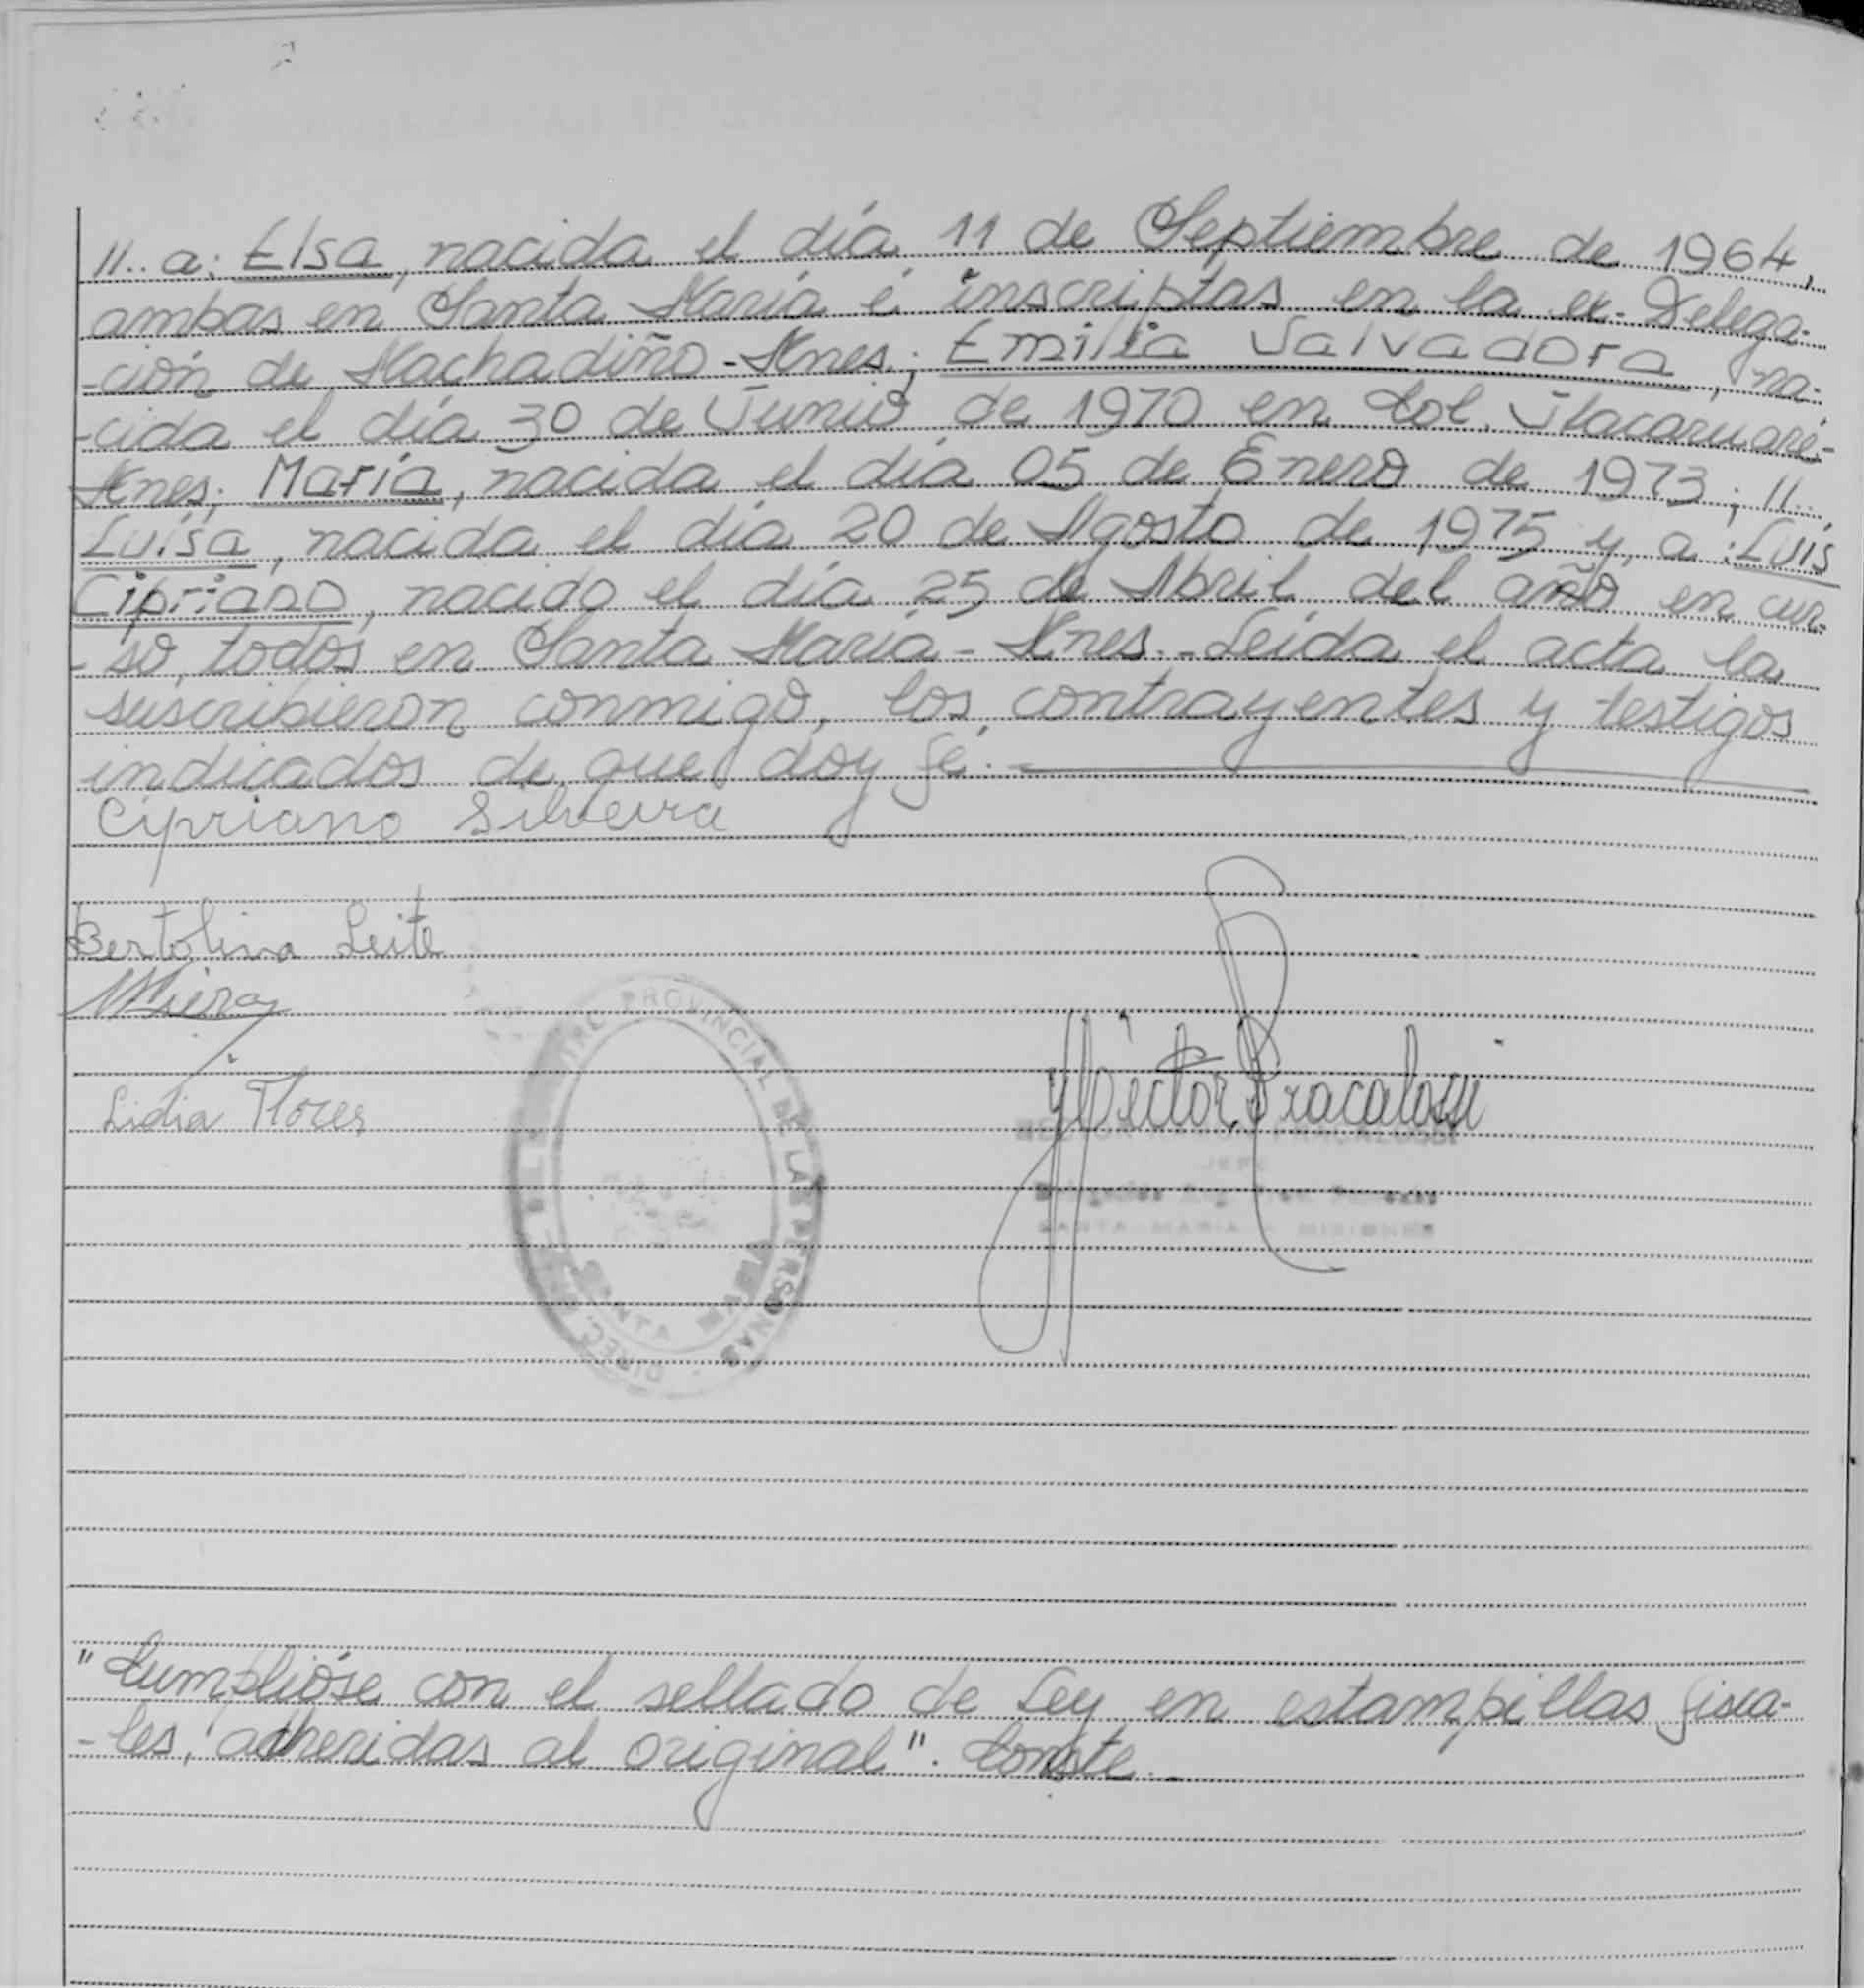 11.. a: Elsa, nacida el día 11 de Septiembre de 1964,
ambas en Santa María é inscriptas en la ex-Delega-
-ción de Machadiño-Mnes; Emilia Salvadora, na-
-cida el día 30 de Junio de 1970 en Col. Itacaruaré-
Mnes; María, nacida el día 05 de Enero de 1973; 11..
Luisa, nacida el día 20 de Agosto de 1975 y, a: Luis
Cipriano, nacido el día 25 de Abril del año en cur-
-so, todos en Santa María-Mnes.- Leída el acta la
suscribieron conmigo, los contrayentes y testigos
indicados de que doy fé.-
Cipriano Silveira
Bertolina Leite
Lidia Flores
PROVINCIAL DE LAS PERSONAS
DIREC.
SANTA
Héctor Fracalossi
JEFE
SANTA MARIA - MISIONES
"Cumplióse con el sellado de Ley en estampillas fisca-
-les, adheridas al original". Conste.-